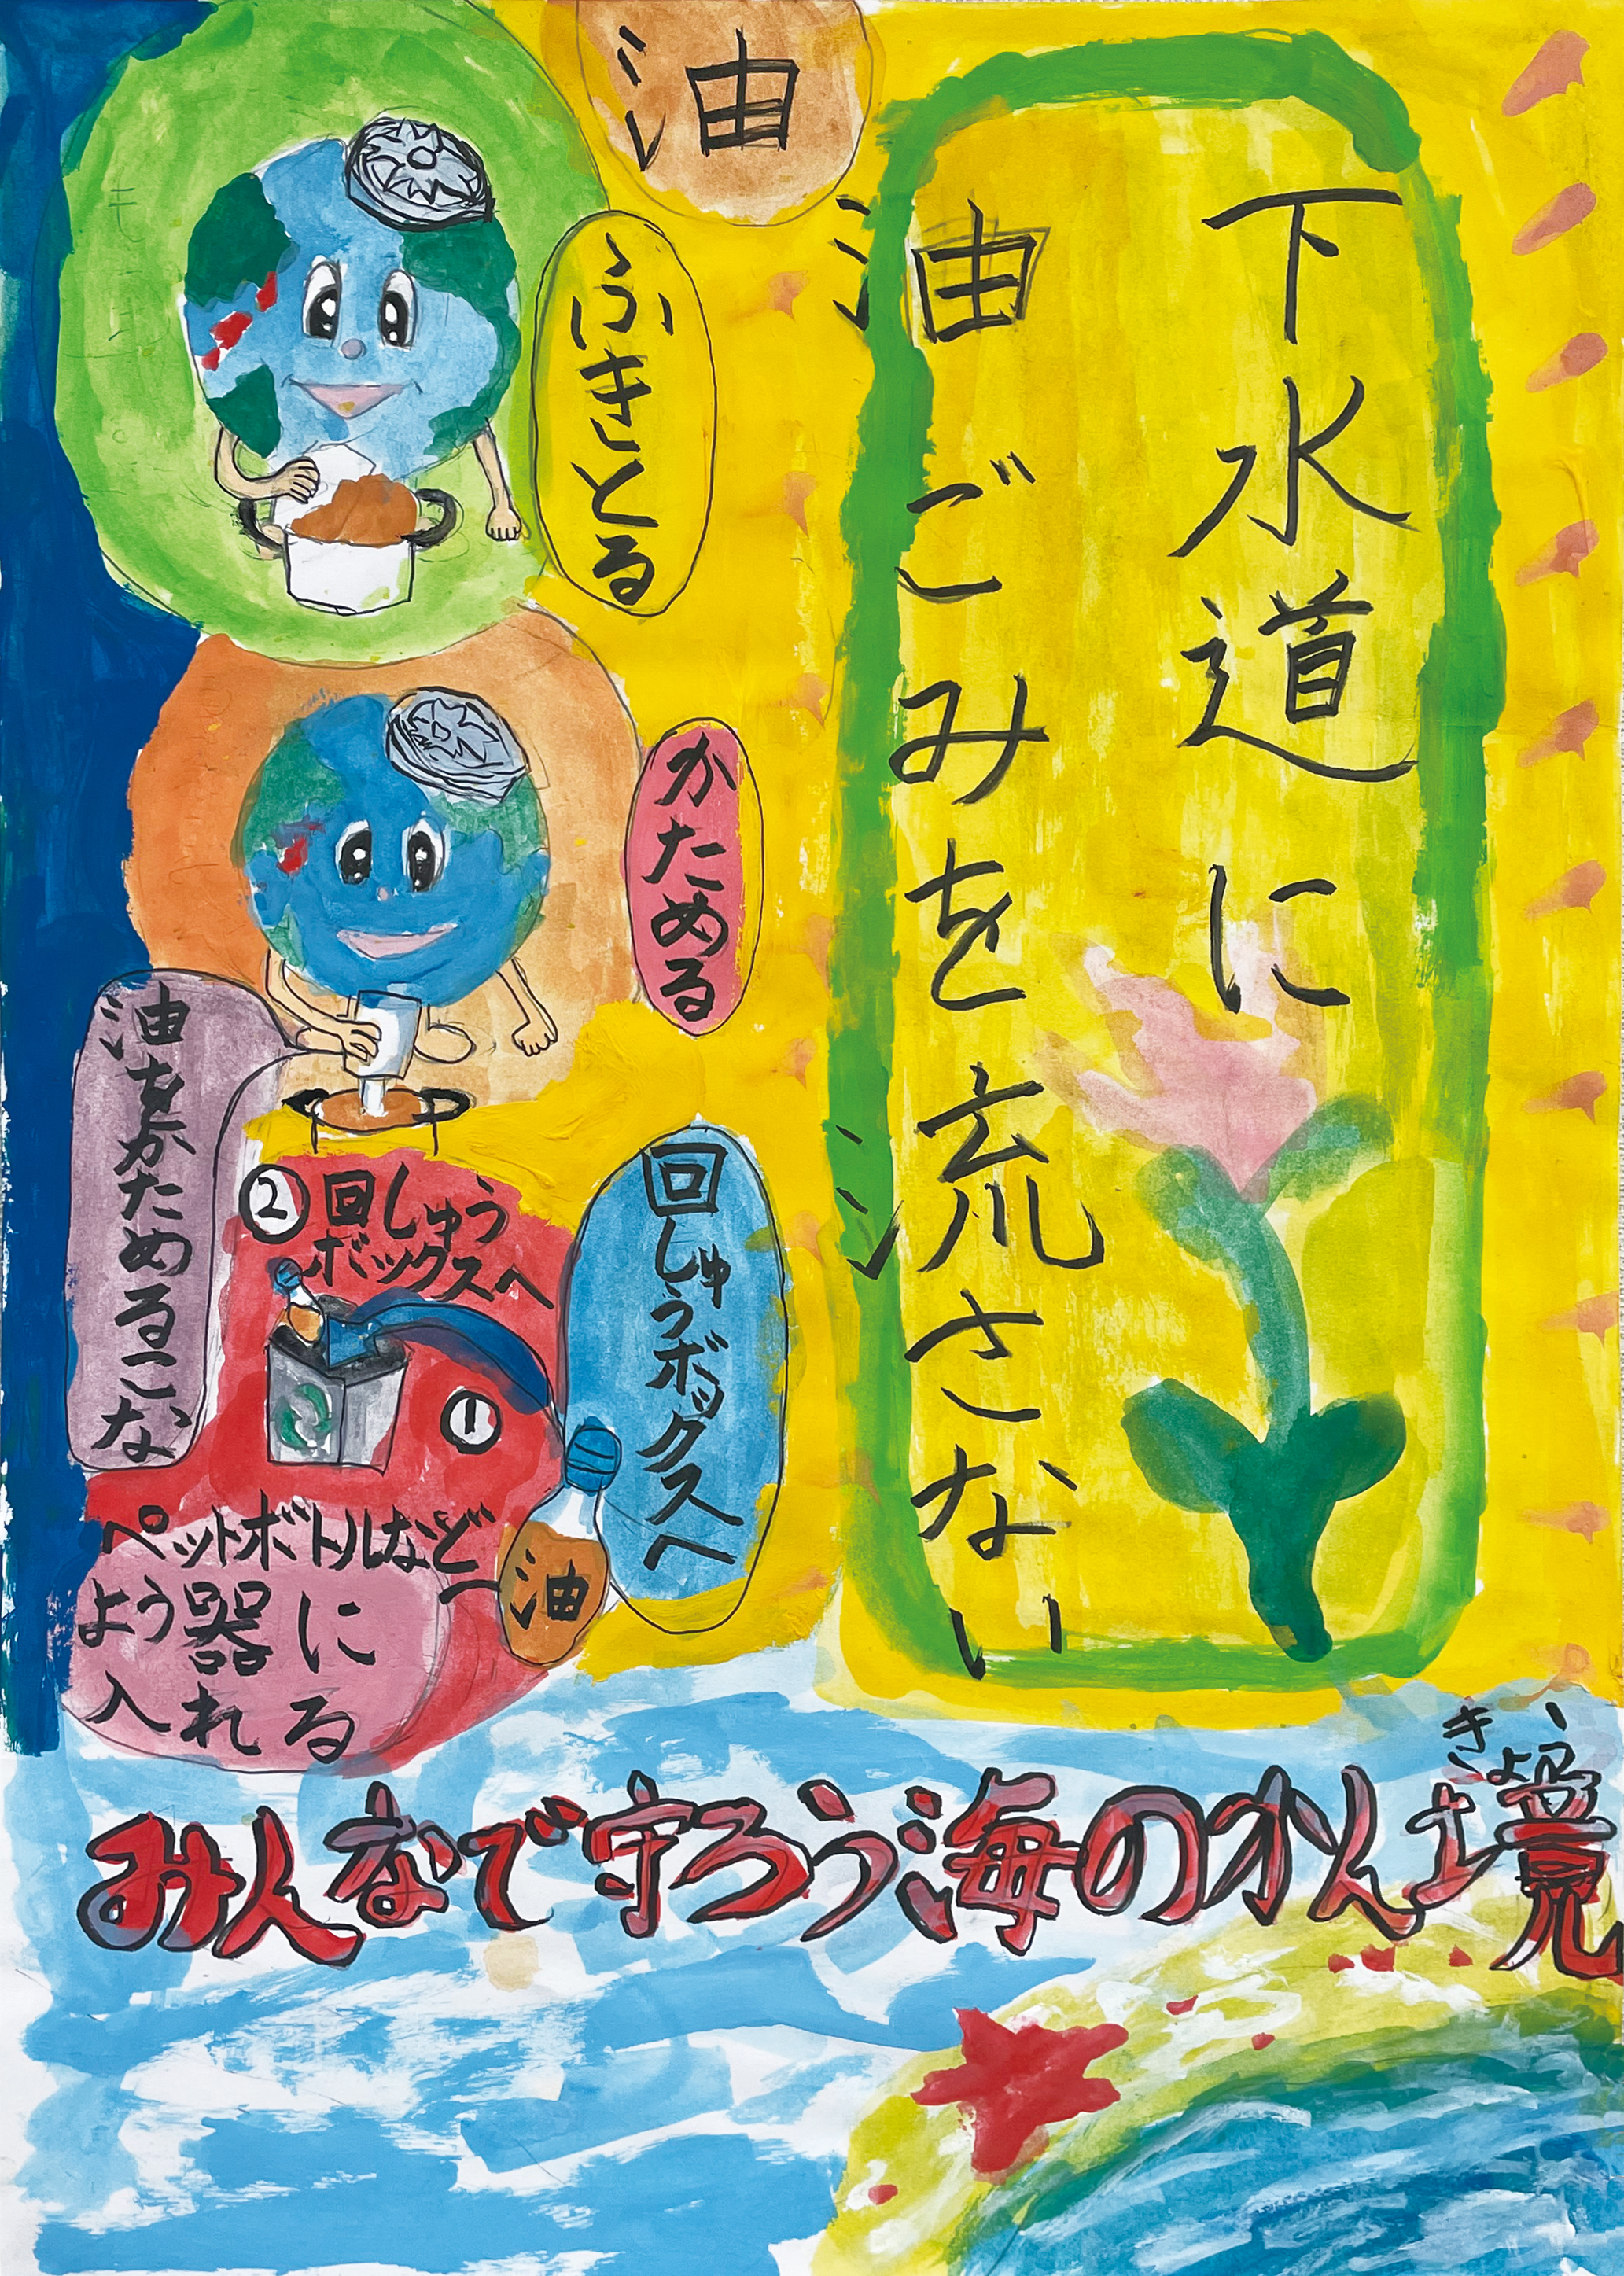 下水道に
油ごみを流さない
油
ふきとる
かためる
油をかためるこな
回しゅうボックスへ
②回しゅう
ボックスへ
①
ペットボトルなど
よう器に
入れる
油
きょう
みんなで守ろう海のかん境